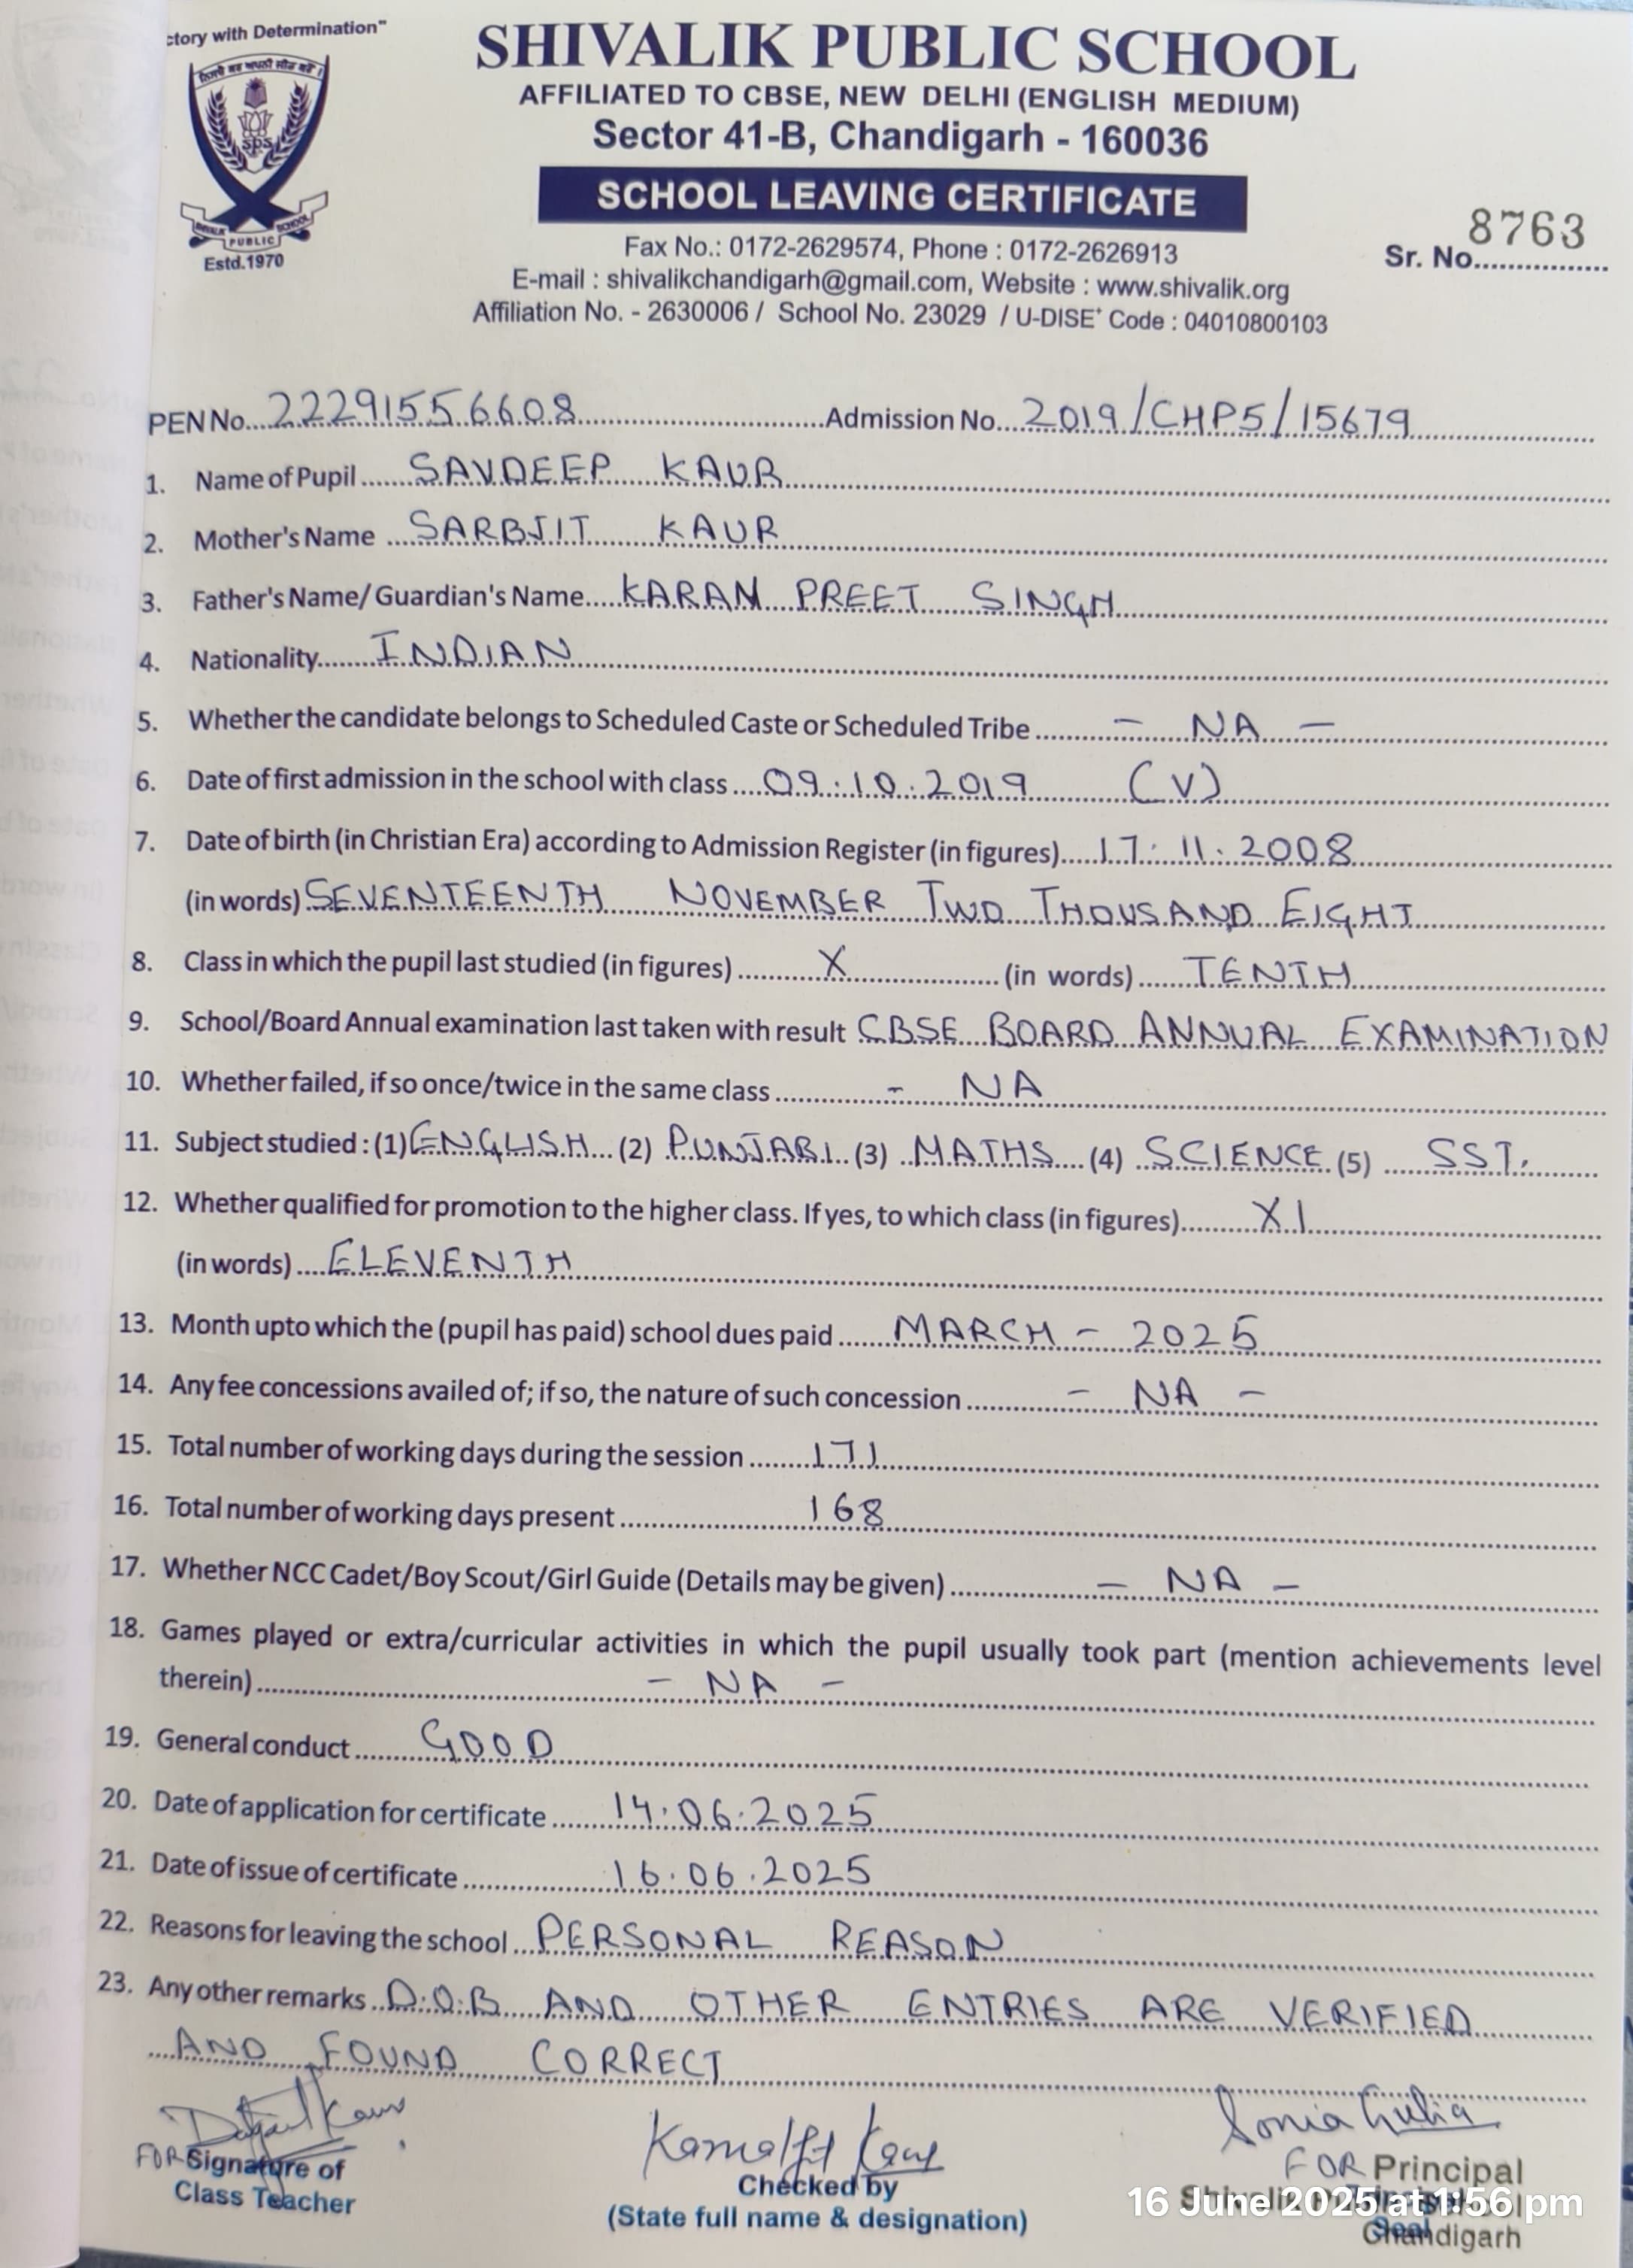 ctory with Determination"
SHIVALIK PUBLIC SCHOOL
AFFILIATED TO CBSE, NEW DELHI (ENGLISH MEDIUM)
Sector 41-B, Chandigarh - 160036
SCHOOL LEAVING CERTIFICATE
sps
PUBLIC SCHOOL
Estd.1970
Fax No.: 0172-2629574, Phone : 0172-2626913
Sr. No. 8763
E-mail : shivalikchandigarh@gmail.com, Website : www.shivalik.org
Affiliation No. - 2630006 / School No. 23029 / U-DISE+ Code : 04010800103
PEN No. 22291556608 Admission No. 2019/CHPS/15679
1. Name of Pupil SAVDEEP KAUR
2. Mother's Name SARBJIT KAUR
3. Father's Name/ Guardian's Name KARAN PREET SINGH
4. Nationality INDIAN
5. Whether the candidate belongs to Scheduled Caste or Scheduled Tribe - NA -
6. Date of first admission in the school with class 09.10.2019 (V)
7. Date of birth (in Christian Era) according to Admission Register (in figures) 17.11.2008
(in words) SEVENTEENTH NOVEMBER TWO THOUSAND EIGHT
8. Class in which the pupil last studied (in figures) X (in words) TENTH
9. School/Board Annual examination last taken with result CBSE BOARD ANNUAL EXAMINATION
10. Whether failed, if so once/twice in the same class - NA
11. Subject studied : (1) ENGLISH (2) PUNJABI (3) MATHS (4) SCIENCE (5) SST.
12. Whether qualified for promotion to the higher class. If yes, to which class (in figures) XI
(in words) ELEVENTH
13. Month upto which the (pupil has paid) school dues paid MARCH - 2025
14. Any fee concessions availed of; if so, the nature of such concession - NA -
15. Total number of working days during the session 171
16. Total number of working days present 168
17. Whether NCC Cadet/Boy Scout/Girl Guide (Details may be given) - NA -
18. Games played or extra/curricular activities in which the pupil usually took part (mention achievements level
therein) - NA -
19. General conduct GOOD
20. Date of application for certificate 14.06.2025
21. Date of issue of certificate 16.06.2025
22. Reasons for leaving the school PERSONAL REASON
23. Any other remarks D.O.B AND OTHER ENTRIES ARE VERIFIED
AND FOUND CORRECT
Kaur
Kaur
Sonia Gulia
FOR Signature of
Class Teacher
Checked by
(State full name & designation)
FOR Principal
16 June 2025 at 1:56 pm
Chandigarh